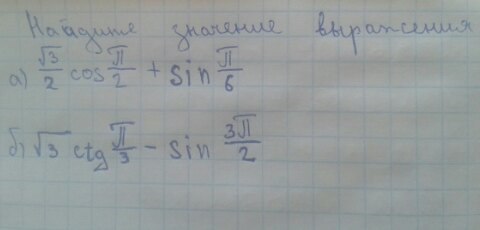 Найдите значение выражения
а) √3/2 cos π/2 + sin π/6
б) √3 ctg π/3 - sin 3π/2